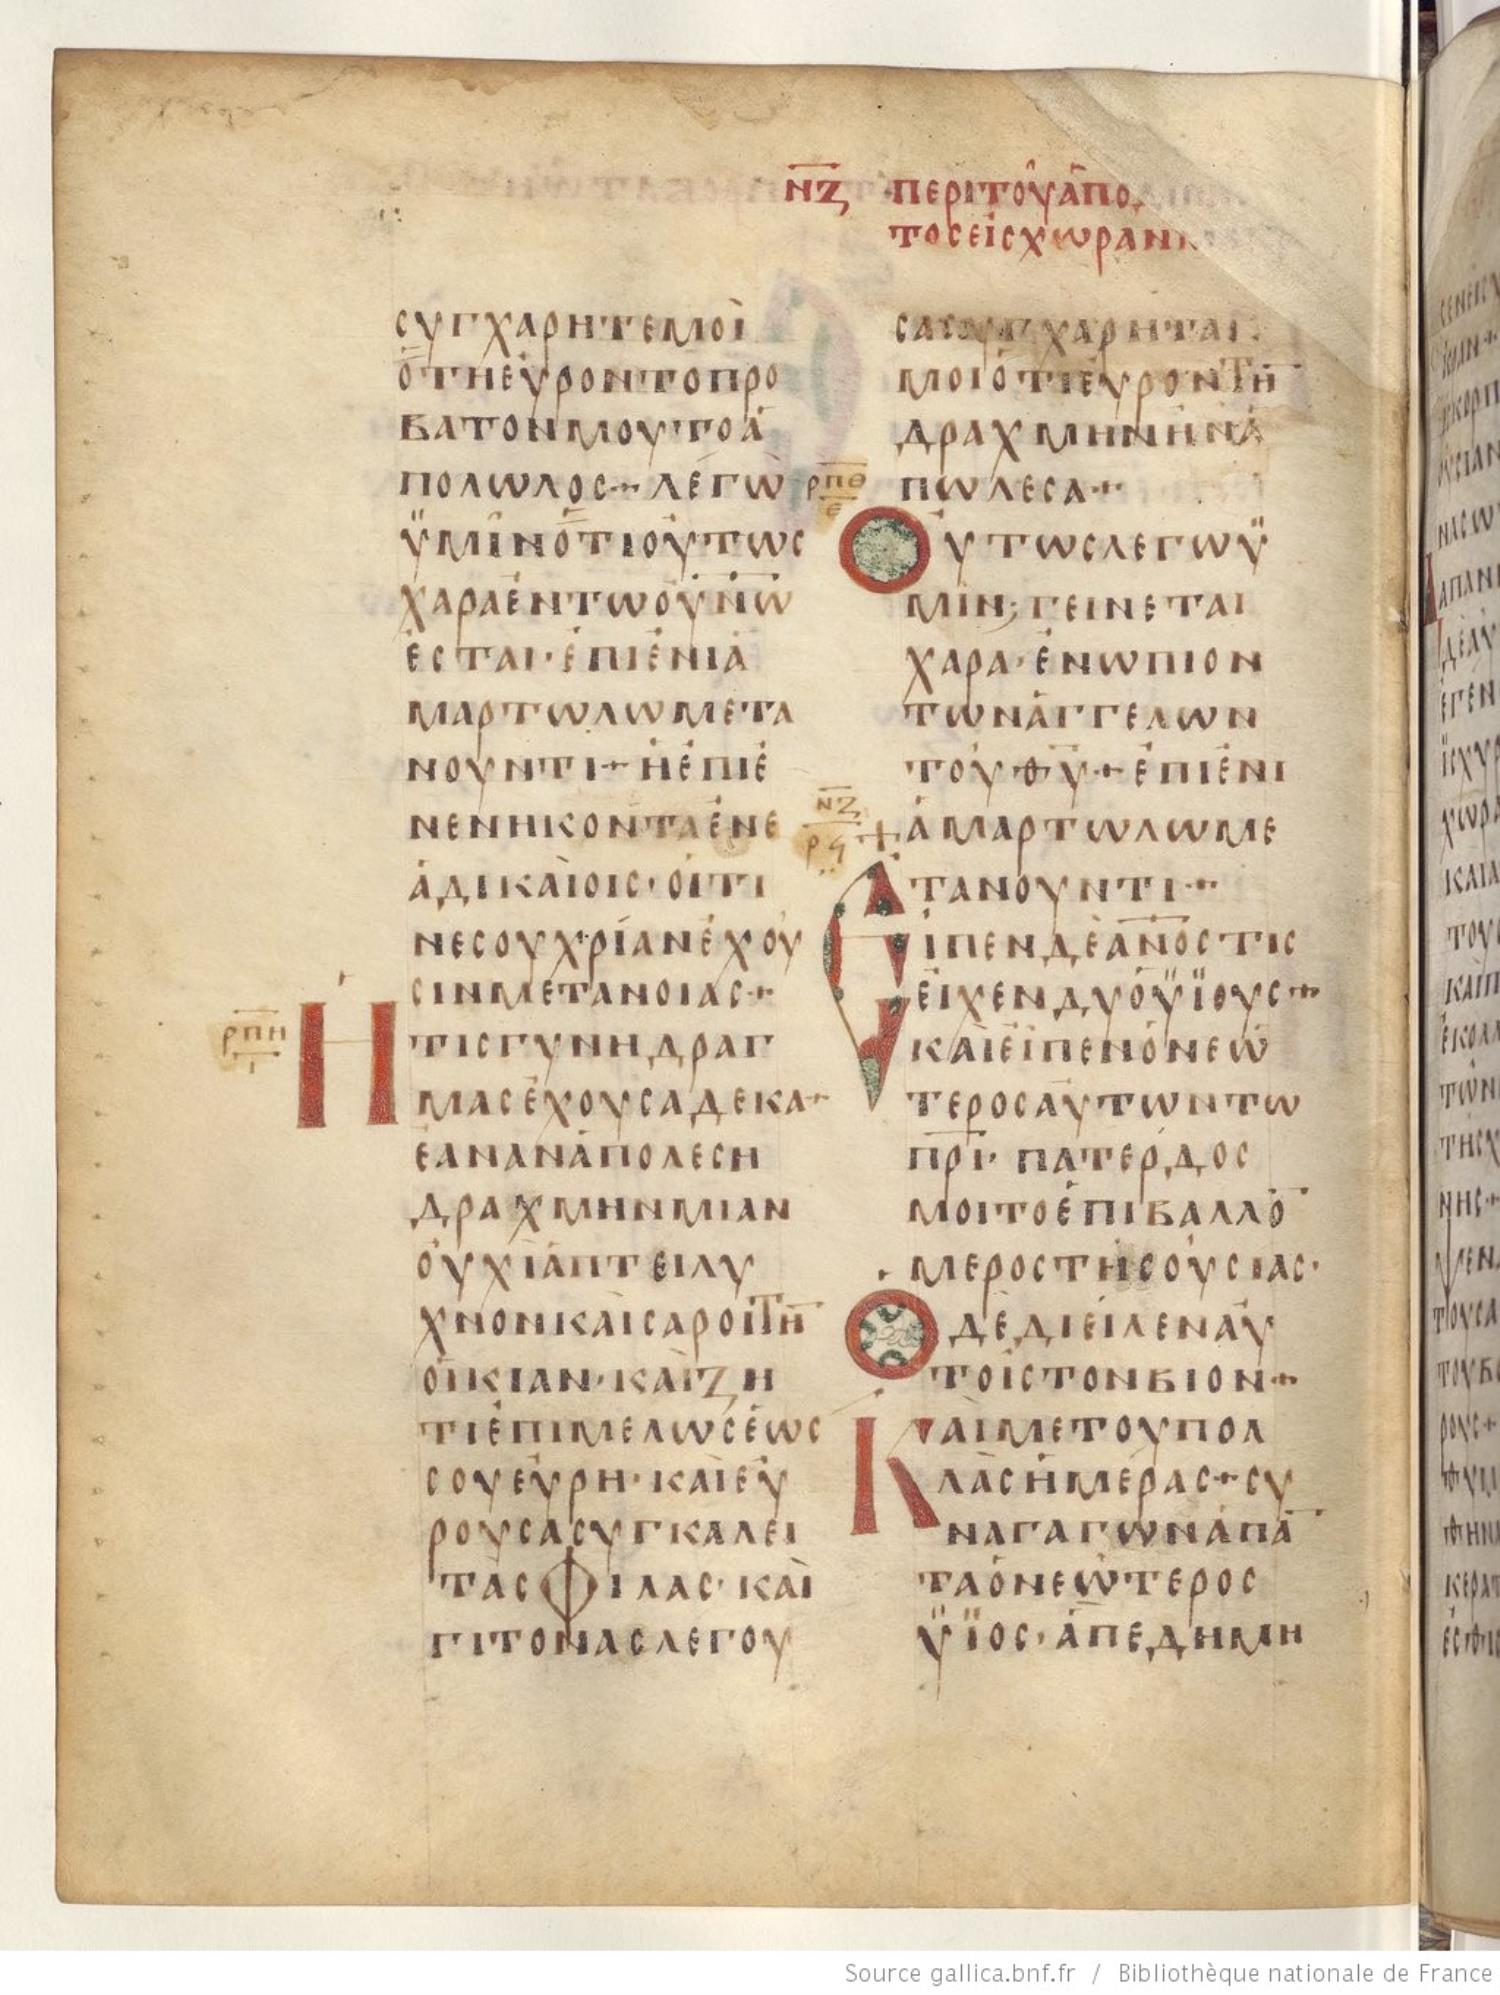 ΝΖ ΠΕΡΙΤΟΥΑΠΟΔ
ΤΟϹΕΙϹΧΩΡΑΝ
ϹΥΓΧΑΡΗΤΕΜΟΙ
ΟΤΗΕΥΡΟΝΤΟΠΡΟ
ΒΑΤΟΝΜΟΥΤΟΑ
ΠΟΛΩΛΟϹ+ΛΕΓΩ
ΫΜΙΝΟΤΙΟΥΤΩϹ
ΧΑΡΑΕΝΤΩΟΥΝΩ
ΕϹΤΑΙ·ΕΠΙΕΝΙΑ
ΜΑΡΤΩΛΩΜΕΤΑ
ΝΟΥΝΤΙ+ΗΕΠΙΕ
ΝΕΝΗΚΟΝΤΑΕΝΕ
ΑΔΙΚΑΙΟΙϹ·ΟΙΤΙ
ΝΕϹΟΥΧΡΙΑΝΕΧΟΥ
ϹΙΝΜΕΤΑΝΟΙΑϹ+
ΡΠΗ
Ι
ΗΤΙϹΓΥΝΗΔΡΑΓ
ΜΑϹΕΧΟΥϹΑΔΕΚΑ+
ΕΑΝΑΝΑΠΟΛΕϹΗ
ΔΡΑΧΜΗΝΜΙΑΝ
ΟΥΧΙΑΠΤΕΙΛΥ
ΧΝΟΝΚΑΙϹΑΡΟΙΤΗ
ΟΙΚΙΑΝ·ΚΑΙΖΗ
ΤΙΕΠΙΜΕΛΩϹΕΩϹ
ϹΟΥΕΥΡΗ·ΚΑΙΕΥ
ΡΟΥϹΑϹΥΓΚΑΛΕΙ
ΤΑϹΦΙΛΑϹ·ΚΑΙ
ΓΙΤΟΝΑϹΛΕΓΟΥ
ϹΑΙϹΥΓΧΑΡΗΤΑΙ
ΜΟΙΟΤΙΕΥΡΟΝΤΗ
ΔΡΑΧΜΗΝΗΝΑ
ΠΩΛΕϹΑ+
ΡΠΘ
Ε
ΟΥΤΩϹΛΕΓΩΫ
ΜΙΝ;ΓΕΙΝΕΤΑΙ
ΧΑΡΑ·ΕΝΩΠΙΟΝ
ΤΩΝΑΓΓΕΛΩΝ
ΤΟΥΘΥ+ΕΠΙΕΝΙ
ΑΜΑΡΤΩΛΩΜΕ
ΤΑΝΟΥΝΤΙ+
ΝΖ
ΡϤ
ΕΙΠΕΝΔΕΑΝΟϹΤΙϹ
ΕΙΧΕΝΔΥΟΫΪΟΥϹ+
ΚΑΙΕΙΠΕΝΟΝΕΩ
ΤΕΡΟϹΑΥΤΩΝΤΩ
ΠΡΙ·ΠΑΤΕΡΔΟϹ
ΜΟΙΤΟΕΠΙΒΑΛΛΟ
ΜΕΡΟϹΤΗϹΟΥϹΙΑϹ·
ΟΔΕΔΙΕΙΛΕΝΑΥ
ΤΟΙϹΤΟΝΒΙΟΝ+
ΚΑΙΜΕΤΟΥΠΟΛ
ΛΑϹΗΜΕΡΑϹ+ϹΥ
ΝΑΓΑΓΩΝΑΠΑ
ΤΑΟΝΕΩΤΕΡΟϹ
ΫΪΟϹ·ΑΠΕΔΗΜΗ
Source gallica.bnf.fr / Bibliothèque nationale de France